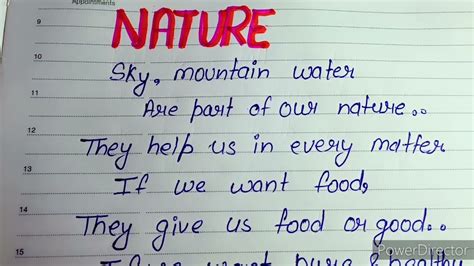 Appointments
9
NATURE
10
Sky, mountain water
11
Are part of our nature..
12
They help us in every matter
13
If we want food,
14
They give us food or good..
15
PowerDirector